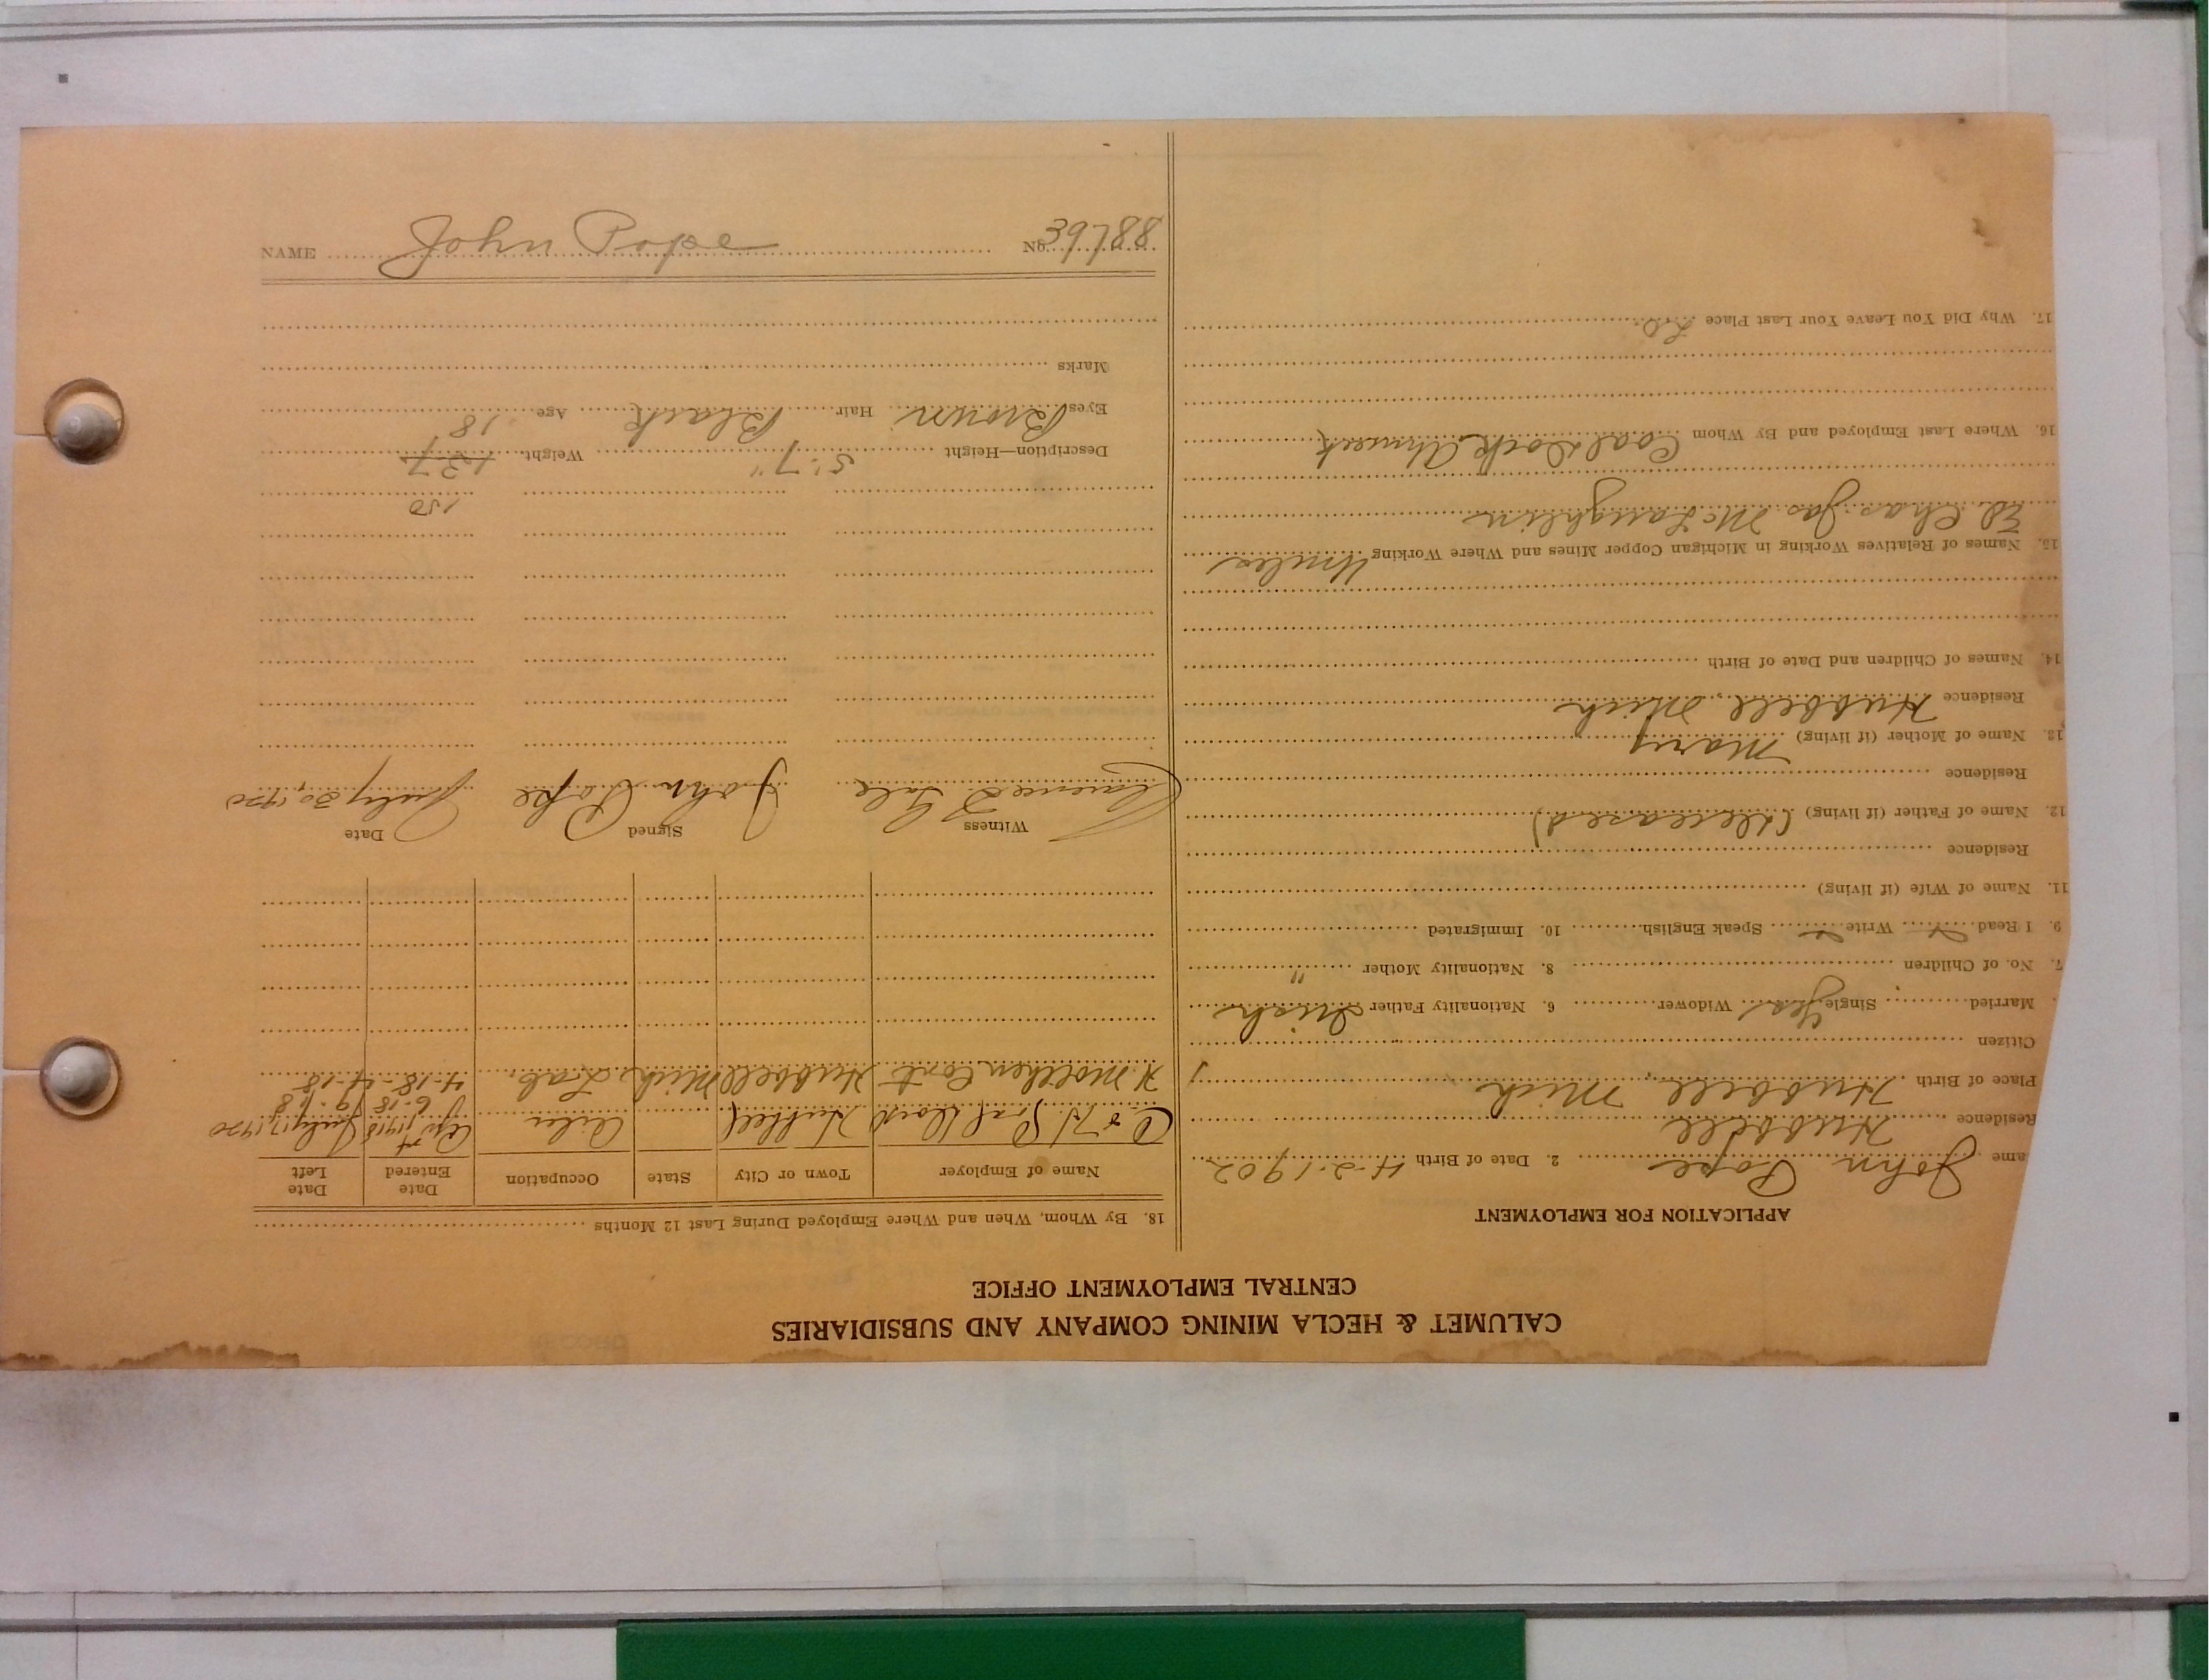 CALUMET & HECLA MINING COMPANY AND SUBSIDIARIES
CENTRAL EMPLOYMENT OFFICE
APPLICATION FOR EMPLOYMENT
ame John Pope 2. Date of Birth 4-2-1902
Residence Hubbell
Place of Birth Hubbell, Mich
Citizen
Married Single Yes Widower 6. Nationality Father Irish
7. No. of Children 8. Nationality Mother "
9. I Read Write Speak English 10. Immigrated
11. Name of Wife (if living)
Residence
12. Name of Father (if living) (deceased)
Residence
13. Name of Mother (if living) Mary
Residence Hubbell, Mich
14. Names of Children and Date of Birth
15. Names of Relatives Working in Michigan Copper Mines and Where Working Uncles
Ed. Chas. Jas McLaughlin
16. Where Last Employed and By Whom Coal Dock
17. Why Did You Leave Your Last Place
18. By Whom, When and Where Employed During Last 12 Months
Name of Employer Town or City State Occupation Date Entered Date Left
C & H Hubbell Oiler July 17 1920
Hubbell Mich Lab. 4-18
Witness Signed Date
Clarence John Pope July 30, 1920
150
Description—Height 5'-7" Weight 137
Eyes Brown Hair Black Age 18
Marks
NAME John Pope No. 39788